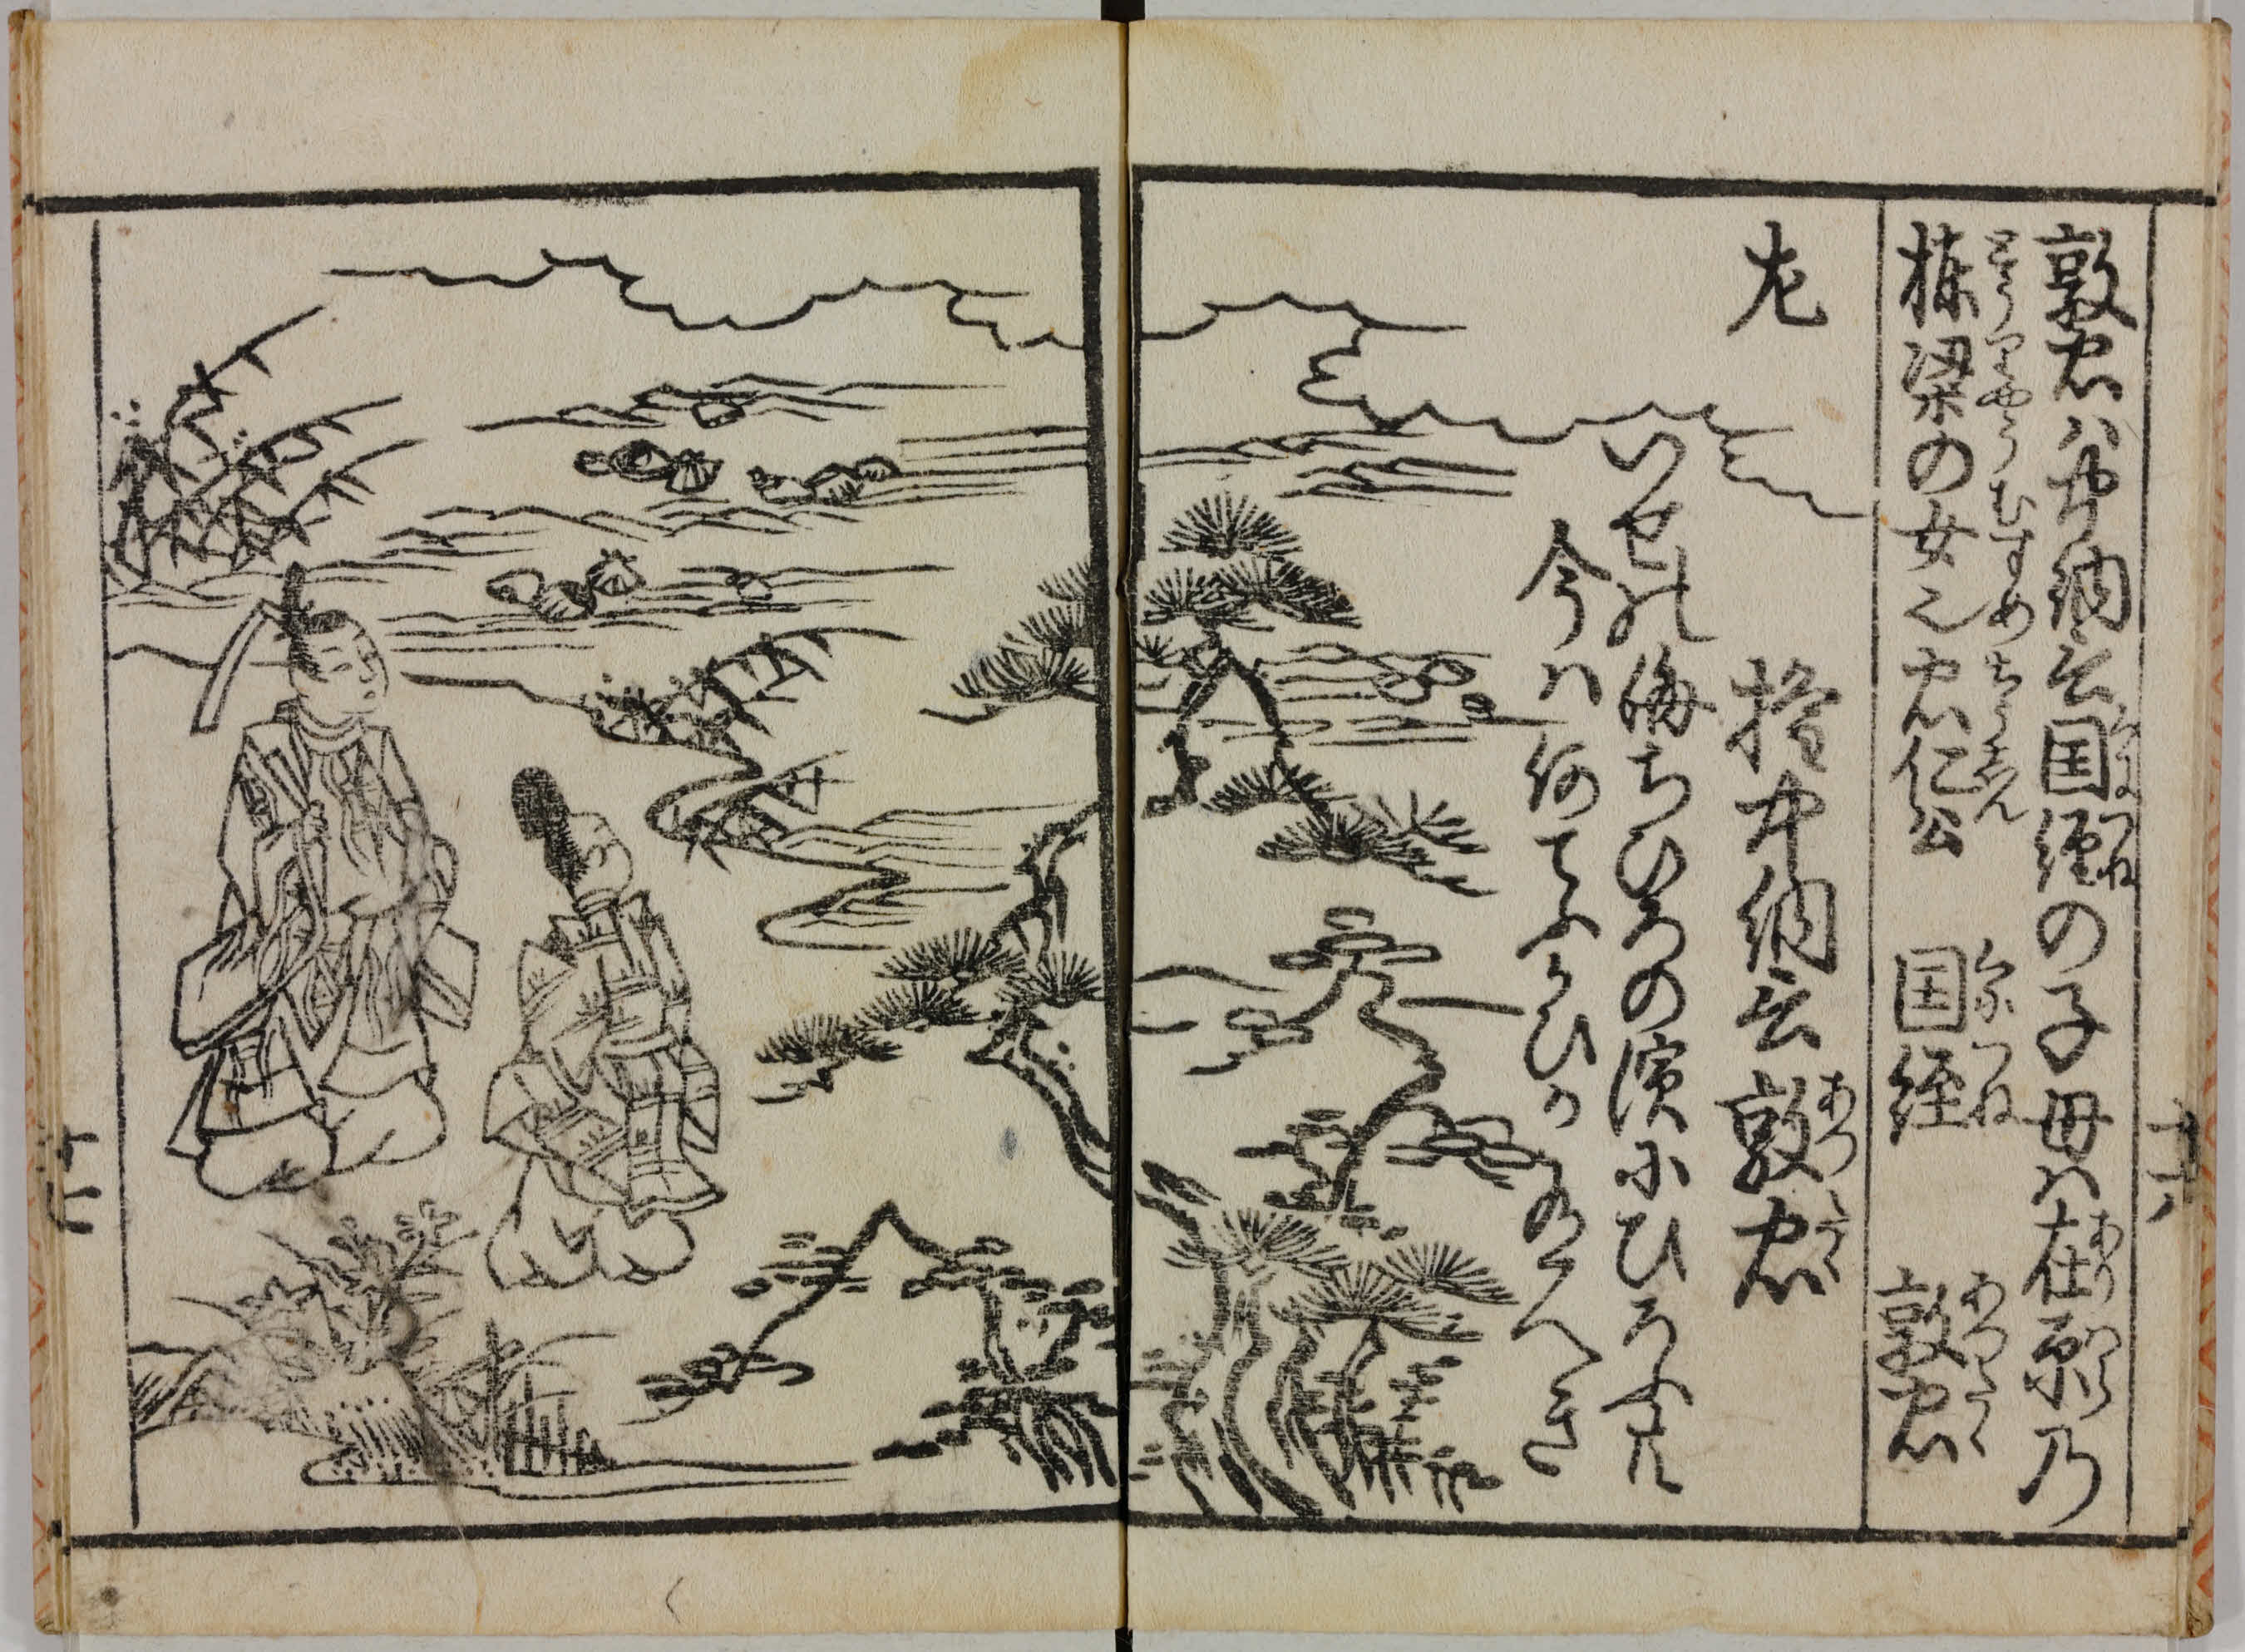 敦忠ハ中納言国経の子母ハ在原乃
棟梁の女也忠仁公　国経　敦忠
左　権中納言敦忠
いせの海ちひろの濱にひろふ共
今ハ何てふかひかあるへき
十六